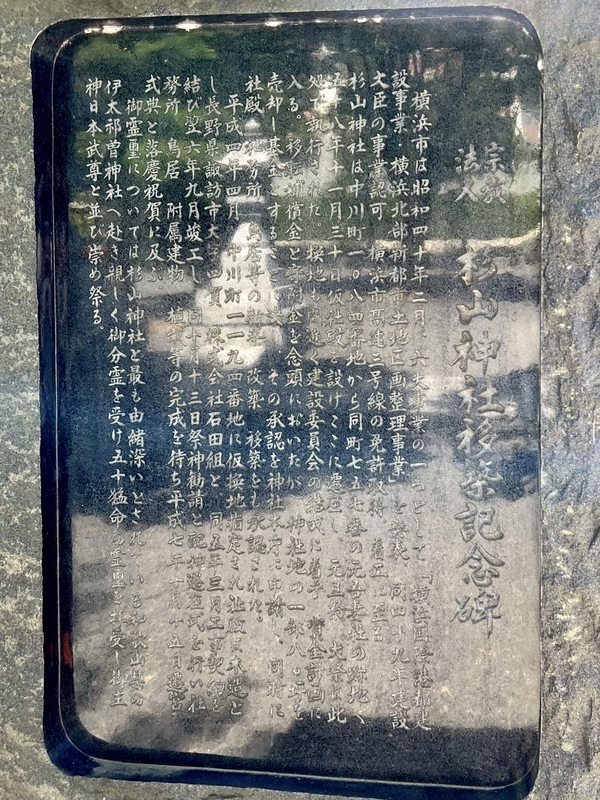 宗教法人 杉山神社移築記念碑
横浜市は昭和四十年二月、六大事業の一つとして「横浜国際港都建
設事業・横浜北部新都市土地区画整理事業」を 同四十九年建設
大臣の事業認可 横浜市高速三号線の免許取得 着工に至る
杉山神社は中川町一〇八四番地から同町七五七番の元 社の跡地へ
五十八年十一月三十日仮社殿を設けここに遷座し 元旦祭 大祭は此
処で執行された。換地も間近く建設委員会の結成に着手 資金計画に
入る。移転補償金と寄附金を念頭においたが 神社地の一部八 坪を
売却し基金とする その承認を神社本庁に申請し 同時に
社殿 社務所 鳥居等の新社 改築 移築をも承認された。
平成四年四月 中川町一一九四番地に仮換地指定され社殿は木造と
し長野県諏訪市大字四賀 株式会社石田組と 同五年三月工事契約を
結び翌六年九月竣工し 同十月十三日祭神勧請と配神遷座式を行い社
務所 鳥居 附属建物 植栽等の完成を待ち平成七年十月十五日遷宮
式典と落慶祝賀に及
御霊璽については杉山神社と最も由緒深いとされている和歌山県の
伊太祁曽神社へ赴き親しく御分霊を受け五十猛命の霊璽を拝受し御主
神日本武尊と並び崇め祭る。